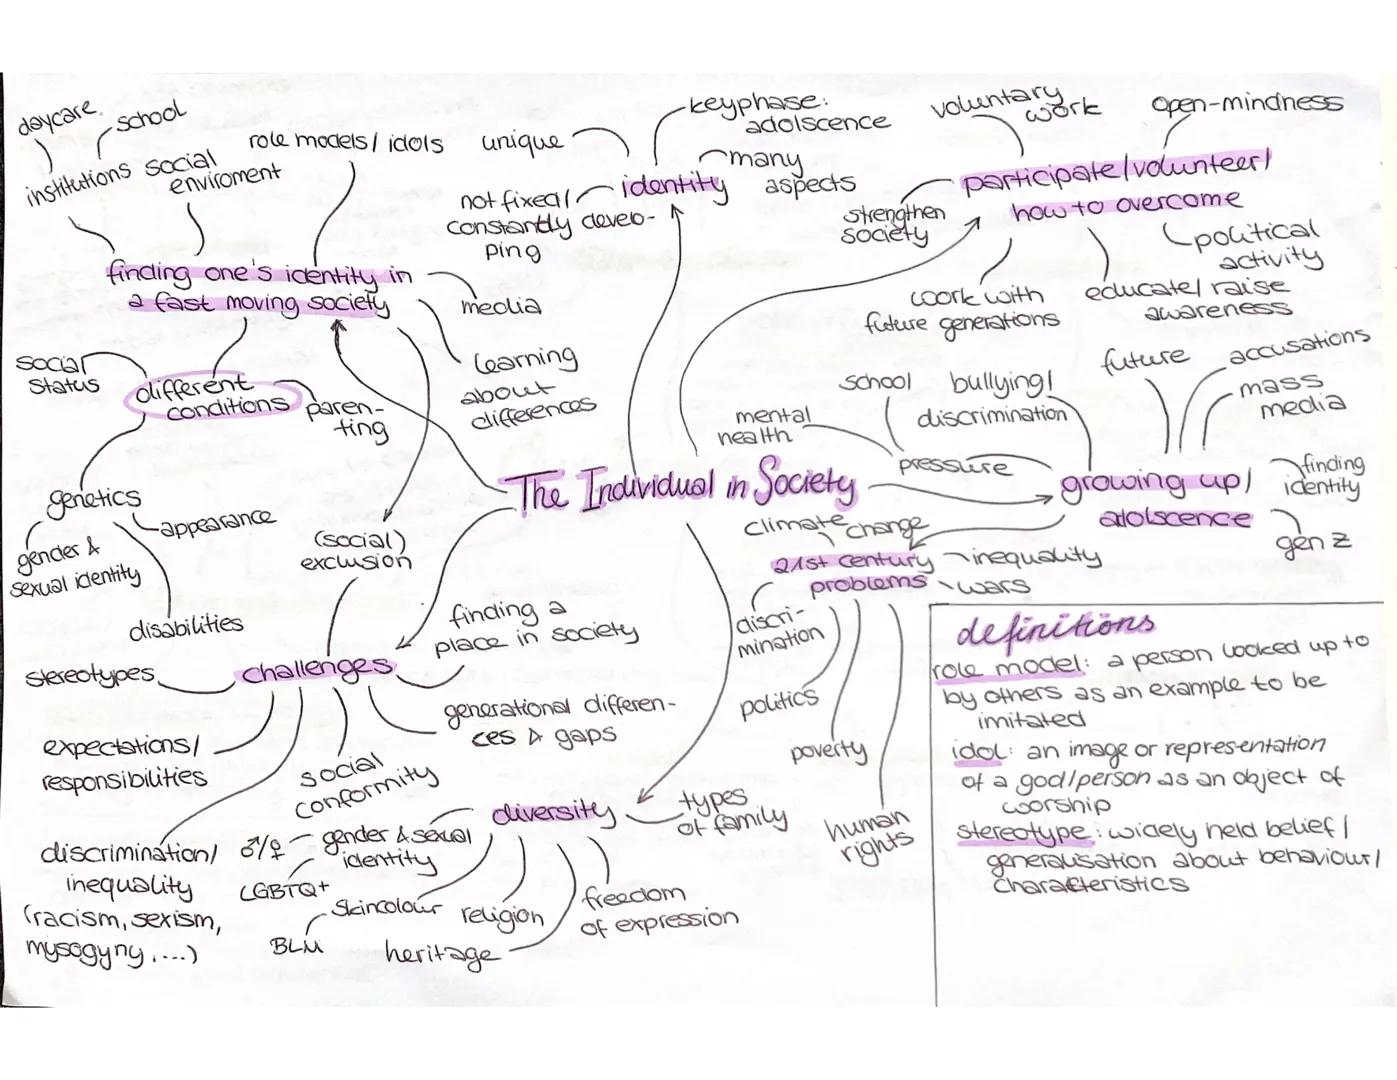 daycare
school
institutions
social
enviroment
role models/ idols
finding one's identity in
a fast moving society
media
learning
about
differences
different
conditions
social
status
paren-
ting
genetics
gender &
sexual identity
appearance
disabilities
(social)
exclusion
unique
keyphase:
adolscence
identity
many
aspects
not fixed/
constantly develo-
ping
voluntary
work
open-mindness
participate/volunteer/
how to overcome
strengthen
society
political
activity
work with
future generations
educate/ raise
awareness
The Individual in Society
school
bullying/
discrimination
mental
health
pressure
future
accusations
mass
media
growing up/
adolscence
finding
identity
gen z
climate change
21st century
problems
inequality
wars
discri-
mination
politics
poverty
human
rights
challenges
stereotypes
finding a
place in society
generational differen-
ces & gaps
expectations/
responsibilities
social
conformity
discrimination/
inequality
(racism, sexism,
mysogyny, ...)
diversity
types
of family
gender & sexual
identity
♂/♀
LGBTQ+
skincolour
BLM
religion
heritage
freedom
of expression
definitions
role model: a person looked up to
by others as an example to be
imitated
idol: an image or representation
of a god/person as an object of
worship
stereotype: widely held belief/
generalisation about behaviour/
characteristics